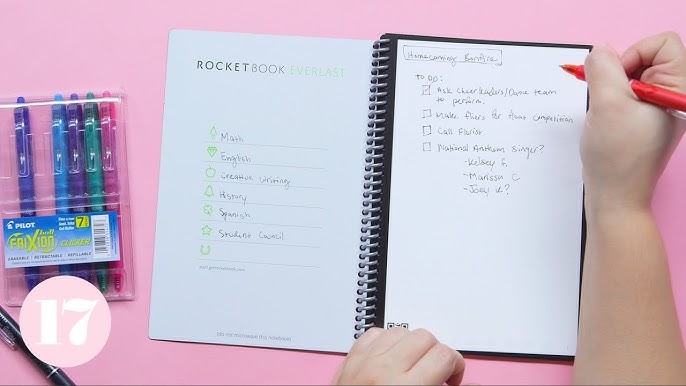 ROCKETBOOK EVERLAST
Math
English
Creative Writing
History
Spanish
Student Council
start.getrocketbook.com
(do not microwave this notebook)
Homecoming Bonfire
TO DO:
Ask Cheerleaders/Dance team
to perform.
Make fliers for float competition
Call Florist
National Anthem Singer?
-Kelsey F.
-Marissa C
-Joey K?
PILOT
FRIXION
ball
CLICKER
ERASABLE | RETRACTABLE | REFILLABLE
17